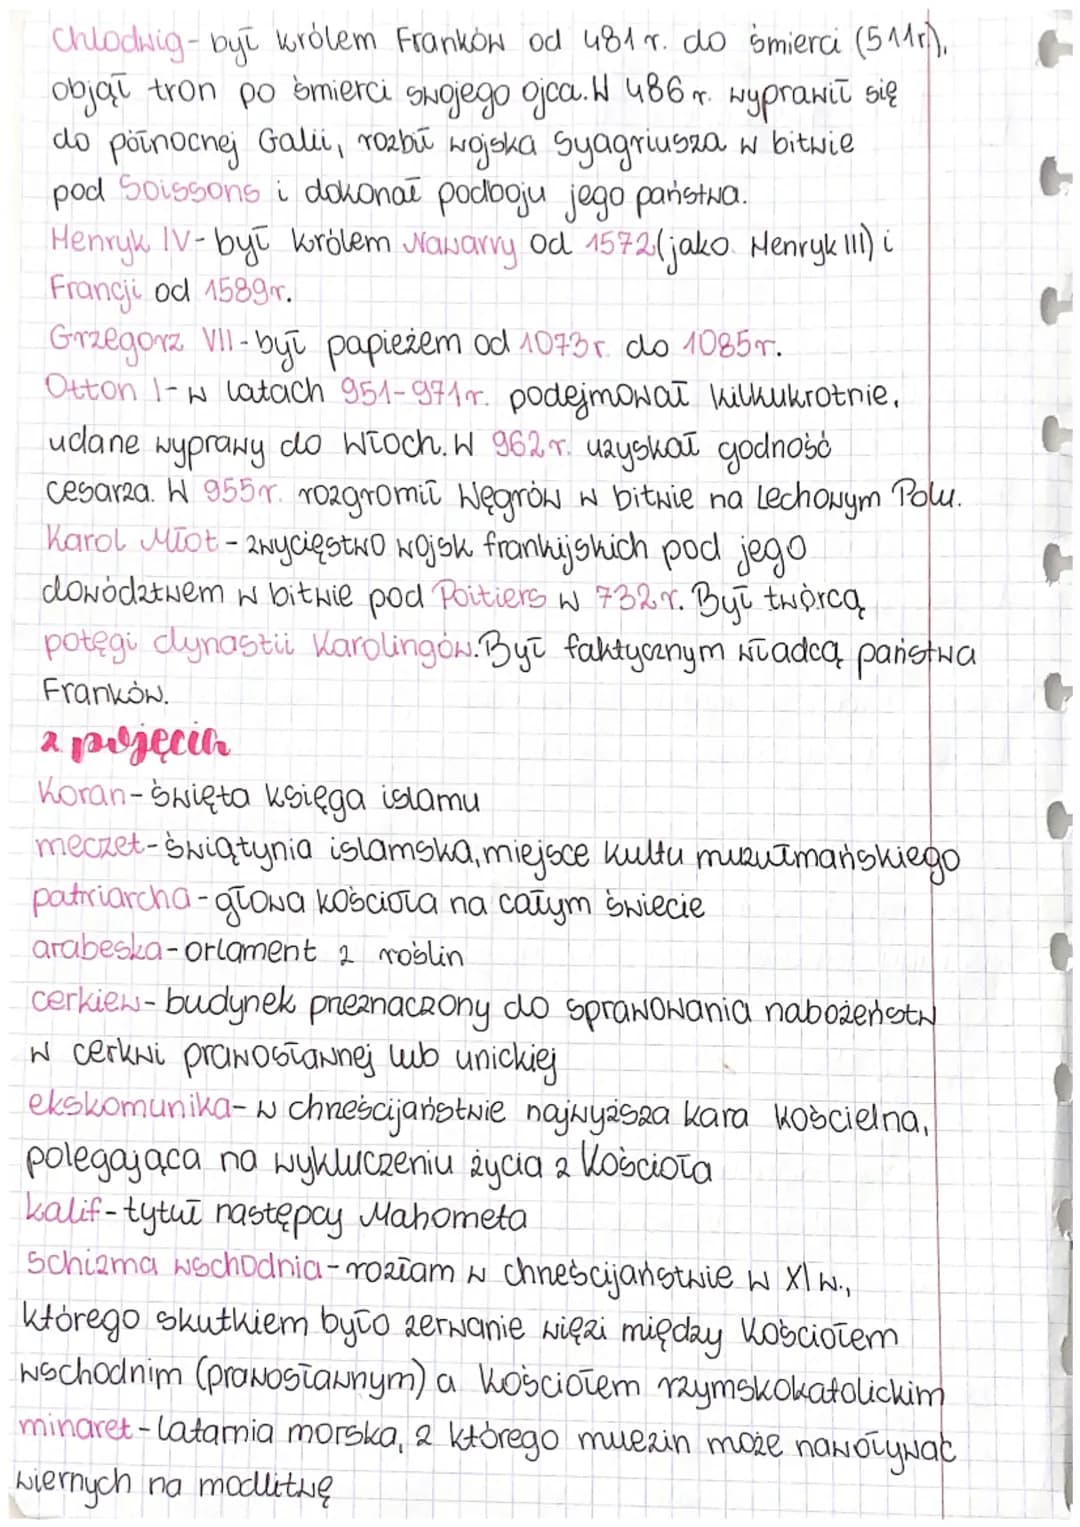 Chlodwig - był królem Franków od 481 r. do śmierci (511r),
objął tron po śmierci swojego ojca. W 486 r. wyprawił się
do północnej Galii, rozbił wojska Syagriusza w bitwie
pod Soissons i dokonał podboju jego państwa.
Henryk IV - był królem Nawarry od 1572 (jako Henryk III) i
Francji od 1589r.
Grzegorz VII - był papieżem od 1073r. do 1085r.
Otton I - w latach 951-971r. podejmował kilkukrotnie,
udane wyprawy do Włoch. W 962r. uzyskał godność
cesarza. W 955r. rozgromił Węgrów w bitwie na Lechowym Polu.
Karol Młot - zwycięstwo wojsk frankijskich pod jego
dowództwem w bitwie pod Poitiers w 732r. Był twórcą
potęgi dynastii Karolingów. Był faktycznym władcą państwa
Franków.
2 pojęcia
Koran - święta księga islamu
meczet - świątynia islamska, miejsce kultu muzułmańskiego
patriarcha - głowa kościoła na całym świecie
arabeska - orlament z roślin
cerkiew - budynek przeznaczony do sprawowania nabożeństw
w cerkwi prawosławnej lub unickiej
ekskomunika - w chrześcijaństwie najwyższa kara kościelna,
polegająca na wykluczeniu życia z Kościoła
kalif - tytuł następcy Mahometa
Schizma wschodnia - rozłam w chrześcijaństwie w XI w.,
którego skutkiem było zerwanie więzi między Kościołem
wschodnim (prawosławnym) a kościołem rzymskokatolickim
minaret - latarnia morska, z którego muezin może nawoływać
wiernych na modlitwę